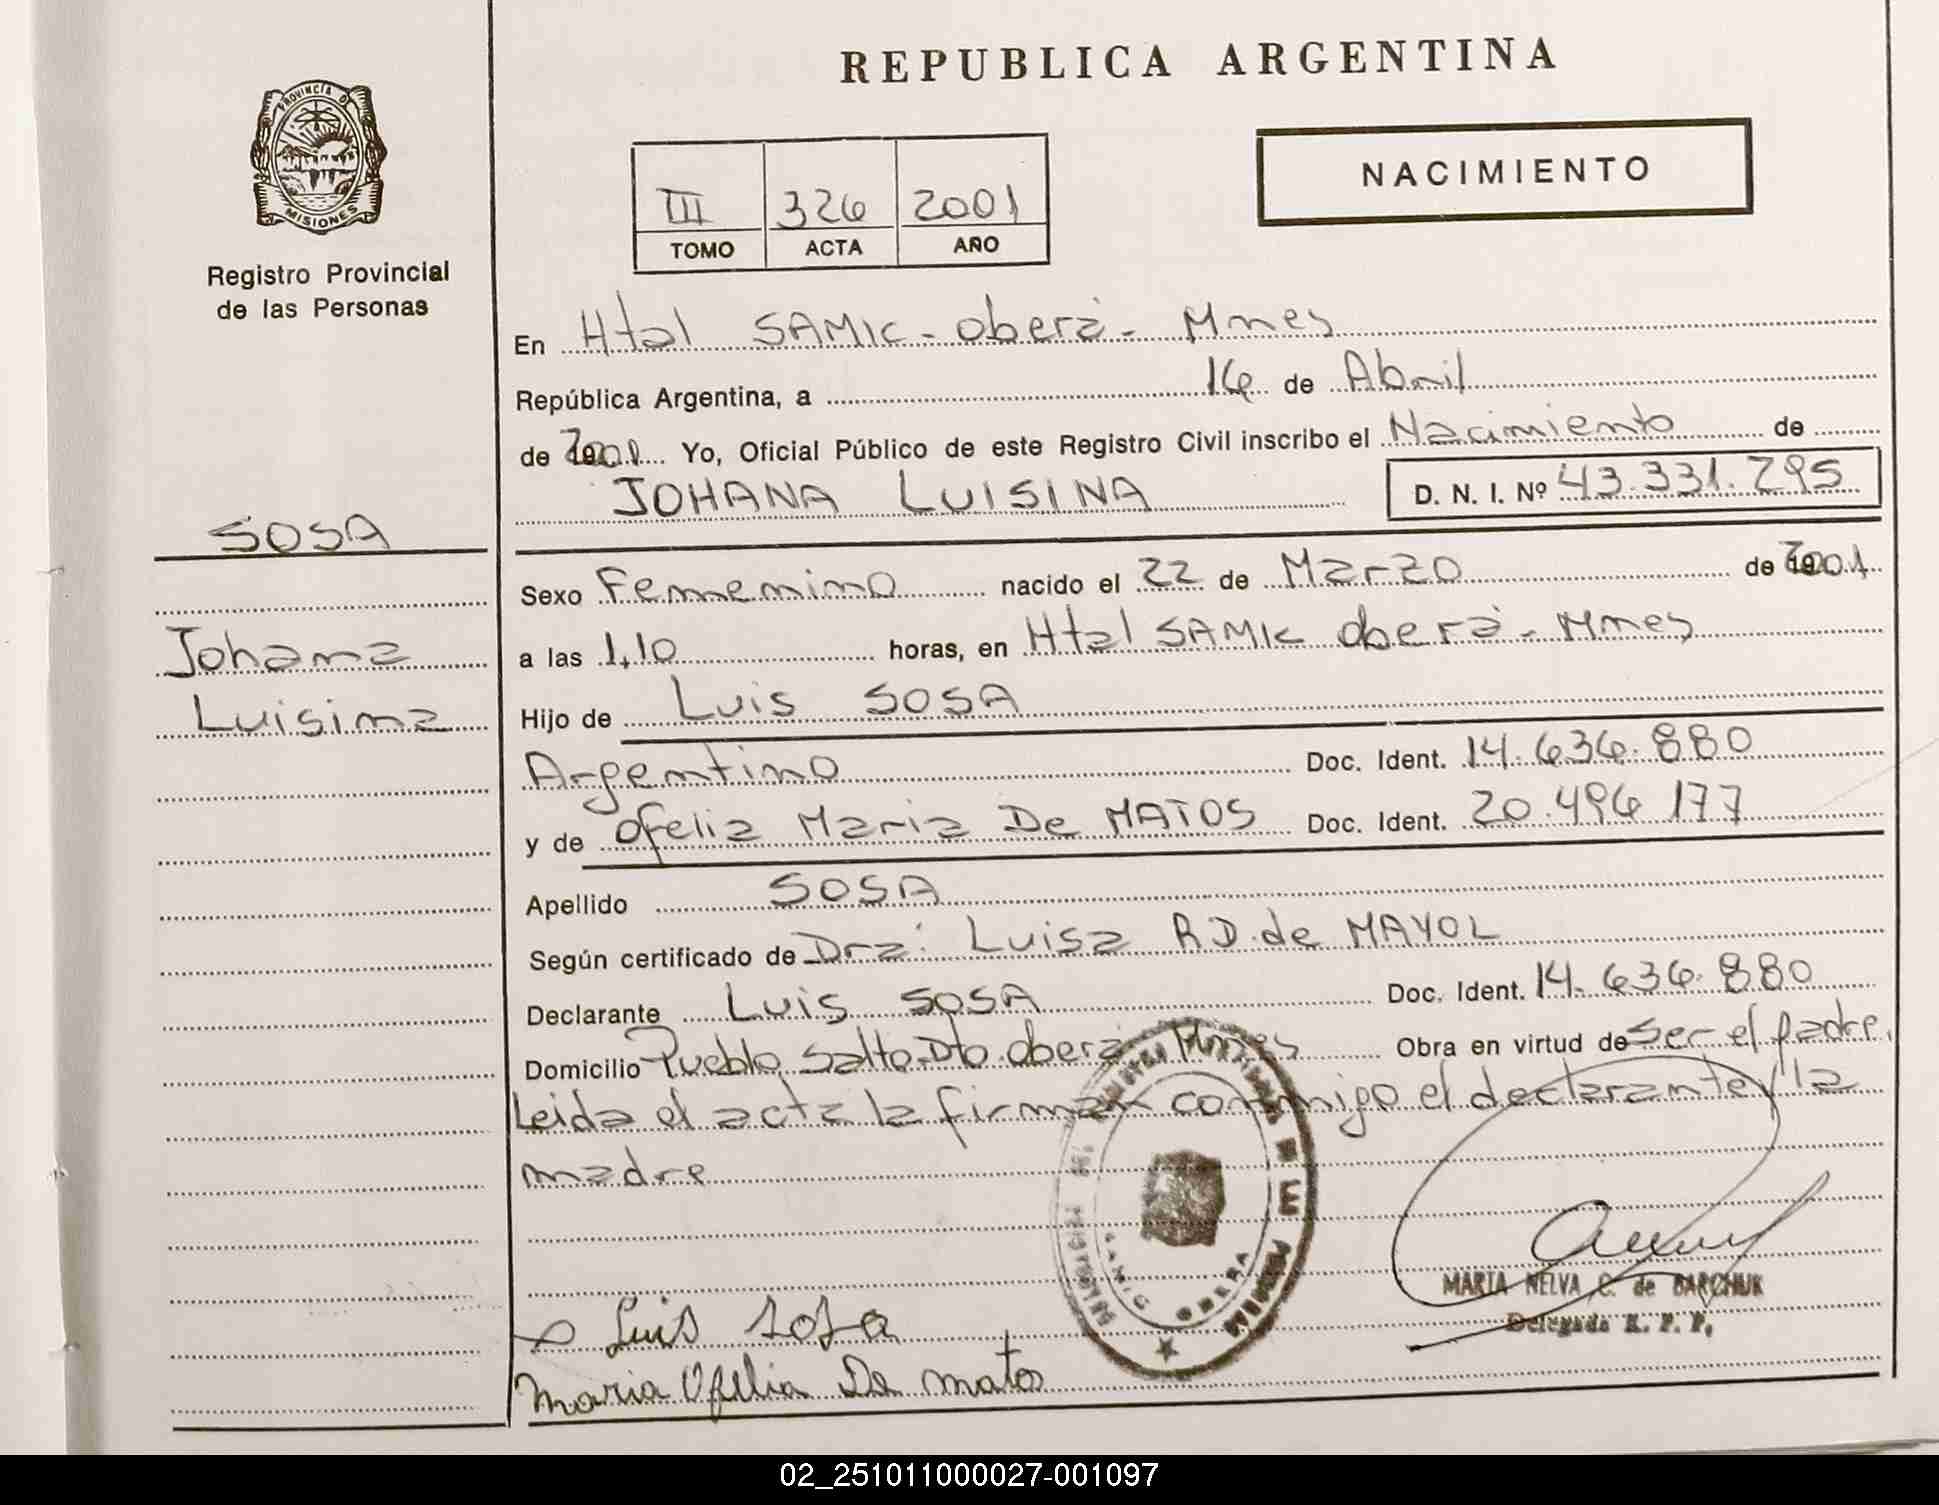 REPUBLICA ARGENTINA
PROVINCIA DE
MISIONES
Registro Provincial
de las Personas
III 326 2001
TOMO ACTA AÑO
NACIMIENTO
En Htal SAMIC - Oberá - Mnes
República Argentina, a 16 de Abril
de 2001 Yo, Oficial Público de este Registro Civil inscribo el Nacimiento de
JOHANA LUISINA D. N. I. Nº 43.331.295
SOSA
Johana
Luisina
Sexo Femenino nacido el 22 de Marzo de 2001
a las 1,10 horas, en Htal SAMIC Oberá - Mnes
Hijo de Luis SOSA
Argentino Doc. Ident. 14.636.880
y de Ofelia Maria De MATOS Doc. Ident. 20.496.177
Apellido SOSA
Según certificado de Dra: Luisa R.D. de MAYOL
Declarante Luis SOSA Doc. Ident. 14.636.880
Domicilio Pueblo Salto Dto. Oberá Mnes Obra en virtud de ser el padre.
Leida el acta la firman conmigo el declarante y la
madre
SAMIC OBERA
MARIA NELVA C. de BARCHUK
Delegada R. P. P.
Luis Sosa
Maria Ofelia De matos
02_251011000027-001097